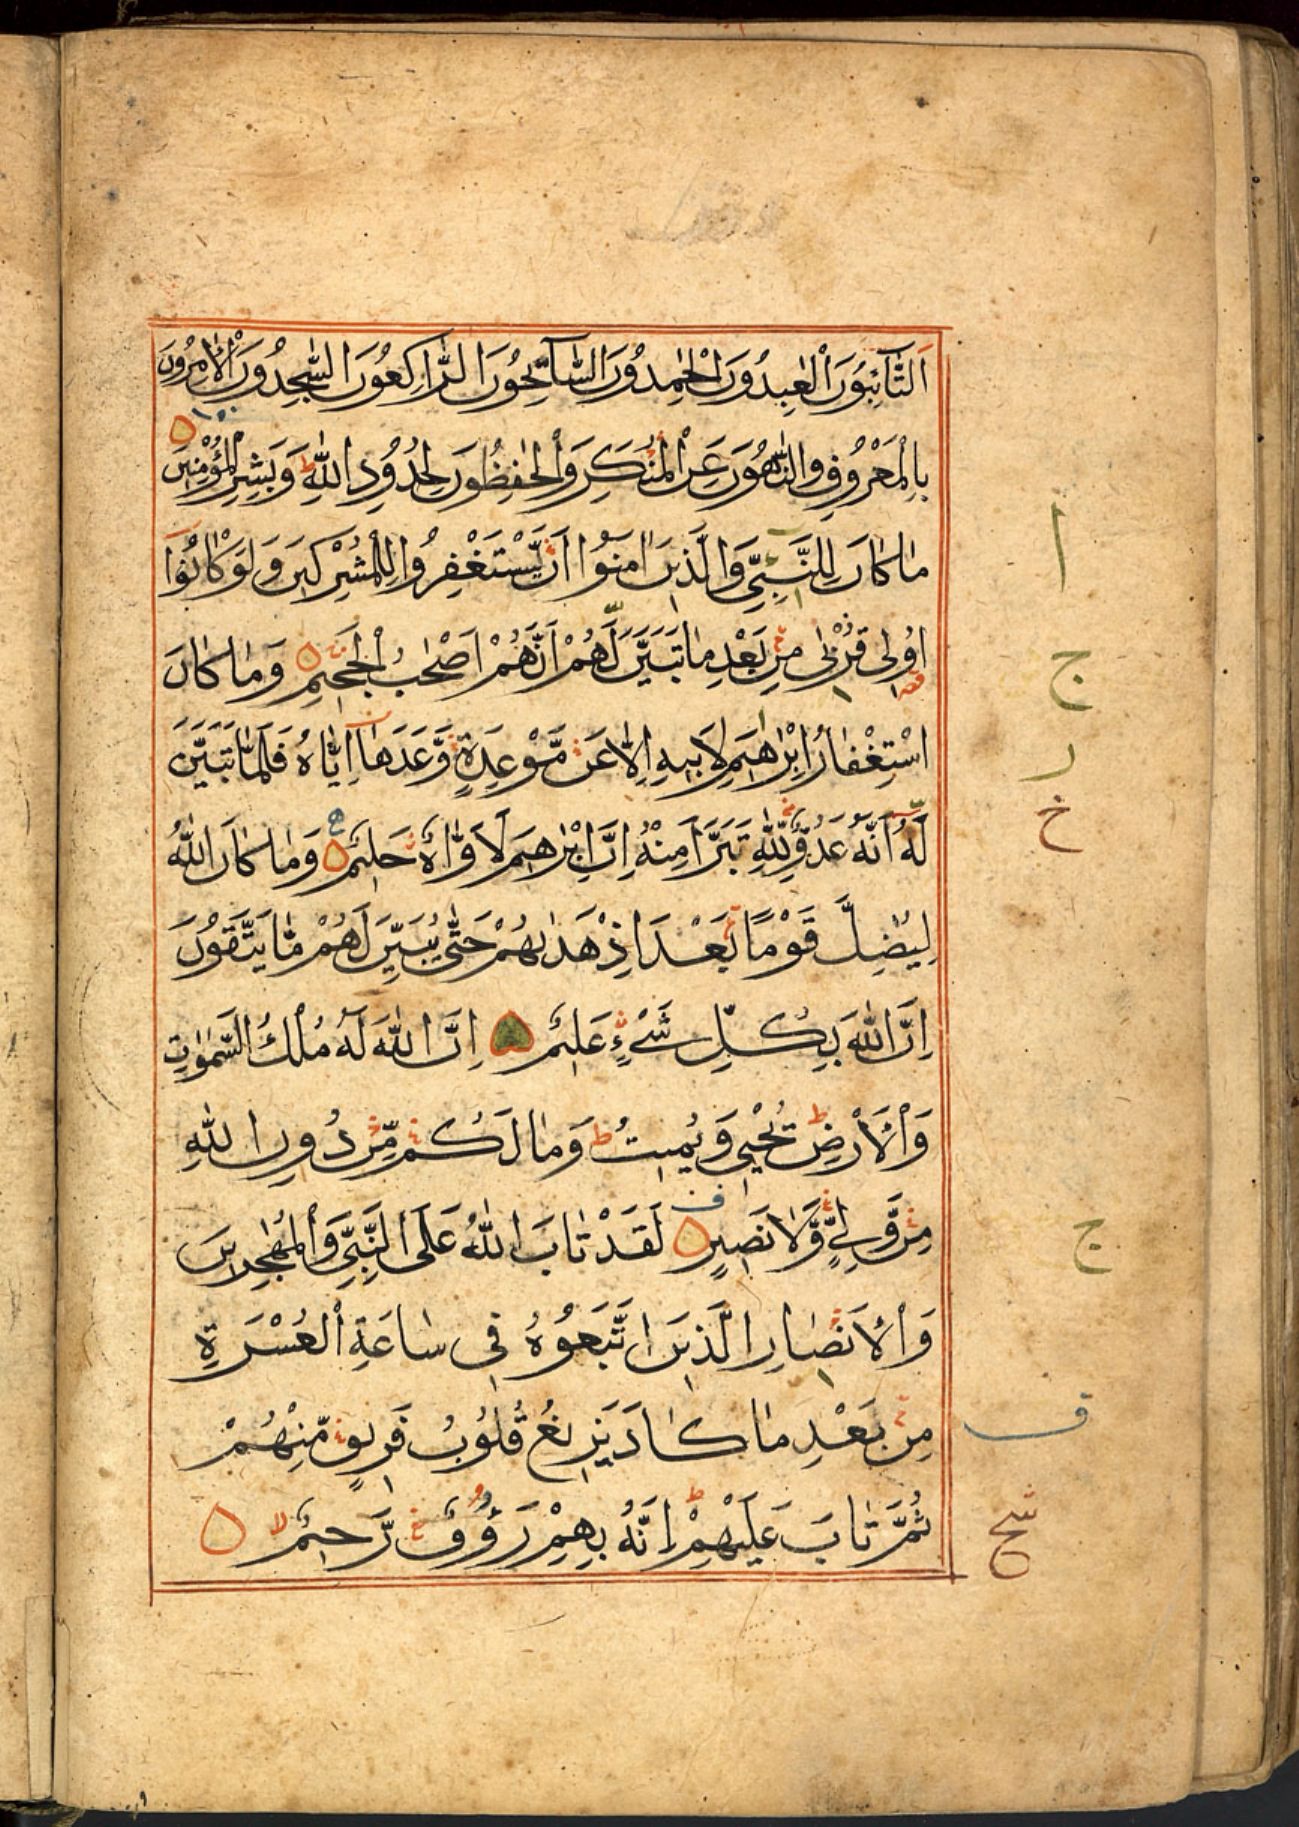 اَلتَّآئِبُوْنَ الْعٰبِدُوْنَ الْحٰمِدُوْنَ السَّآئِحُوْنَ الرَّاكِعُوْنَ السّٰجِدُوْنَ الْاٰمِرُوْنَ
بِالْمَعْرُوْفِ وَالنَّاهُوْنَ عَنِ الْمُنْكَرِ وَالْحٰفِظُوْنَ لِحُدُوْدِ اللّٰهِ ط وَبَشِّرِ الْمُؤْمِنِيْنَ
مَا كَانَ لِلنَّبِيِّ وَالَّذِيْنَ اٰمَنُوْا اَنْ يَّسْتَغْفِرُوْا لِلْمُشْرِكِيْنَ وَلَوْ كَانُوْا
اُولِى قُرْبٰى مِنْ بَعْدِ مَا تَبَيَّنَ لَهُمْ اَنَّهُمْ اَصْحٰبُ الْجَحِيْمِ وَمَا كَانَ
اسْتِغْفَارُ اِبْرٰهِيْمَ لِاَبِيْهِ اِلَّا عَنْ مَّوْعِدَةٍ وَّعَدَهَآ اِيَّاهُ فَلَمَّا تَبَيَّنَ
لَهٗ اَنَّهٗ عَدُوٌّ لِّلّٰهِ تَبَرَّاَ مِنْهُ اِنَّ اِبْرٰهِيْمَ لَاَوَّاهٌ حَلِيْمٌ وَمَا كَانَ اللّٰهُ
لِيُضِلَّ قَوْمًا بَعْدَ اِذْ هَدٰىهُمْ حَتّٰى يُبَيِّنَ لَهُمْ مَّا يَتَّقُوْنَ
اِنَّ اللّٰهَ بِكُلِّ شَىْءٍ عَلِيْمٌ اِنَّ اللّٰهَ لَهٗ مُلْكُ السَّمٰوٰتِ
وَالْاَرْضِ ط يُحْيٖ وَيُمِيْتُ ط وَمَا لَكُمْ مِّنْ دُوْنِ اللّٰهِ
مِنْ وَّلِيٍّ وَّلَا نَصِيْرٍ لَقَدْ تَابَ اللّٰهُ عَلَى النَّبِيِّ وَالْمُهٰجِرِيْنَ
وَالْاَنْصَارِ الَّذِيْنَ اتَّبَعُوْهُ فِى سَاعَةِ الْعُسْرَةِ
مِنْ بَعْدِ مَا كَادَ يَزِيْغُ قُلُوْبُ فَرِيْقٍ مِّنْهُمْ
ثُمَّ تَابَ عَلَيْهِمْ ط اِنَّهٗ بِهِمْ رَءُوْفٌ رَّحِيْمٌ لا
ا
ج
ر
خ
ج
ف